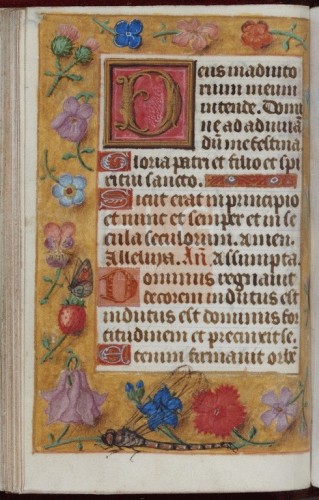 Deus in adiuto
rium meum
intende. Domi
ne ad adiuuan
dū me festina.
Gloria patri et filio et spi
ritui sancto.
Sicut erat in principio
et nunc et semper et in se
cula seculorum. Amen.
Alleluya. Añ. Assumpta.
Dominus regnauit
decorem indutus est
indutus est dominus for
titudinem et precinxit se.
Etenim firmauit orbē